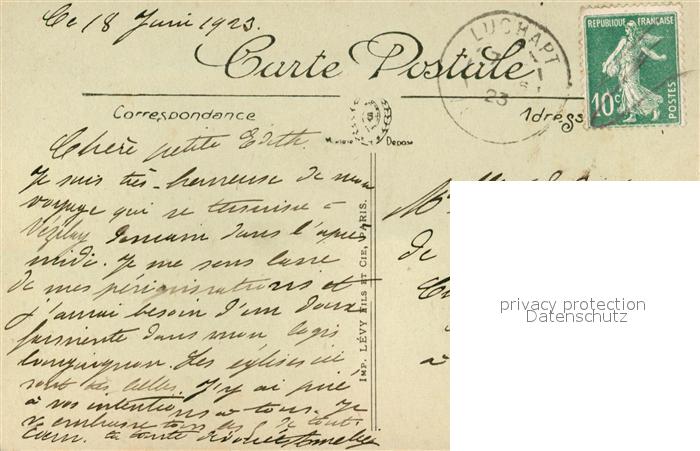 Ce 18 Juin 1923.
Carte Postale
LUCHAPT
23
REPUBLIQUE FRANÇAISE
10c
POSTES
Correspondance
Adresse
Modèle Déposé
Chère petite Edith.
Je suis très-heureuse de mon
voyage qui se termine à
Vézelay demain dans l'après
midi. Je me sens lasse
de mes pérégrinations et
j'aurai besoin d'un doux
farniente dans mon logis
Les églises ici
sont très belles. J'y ai prié
à vos intentions à tous. Je
vous embrasse tous de tout
cœur. ta tante
IMP. LÉVY FILS ET CIE, PARIS.
de
à
privacy protection
Datenschutz